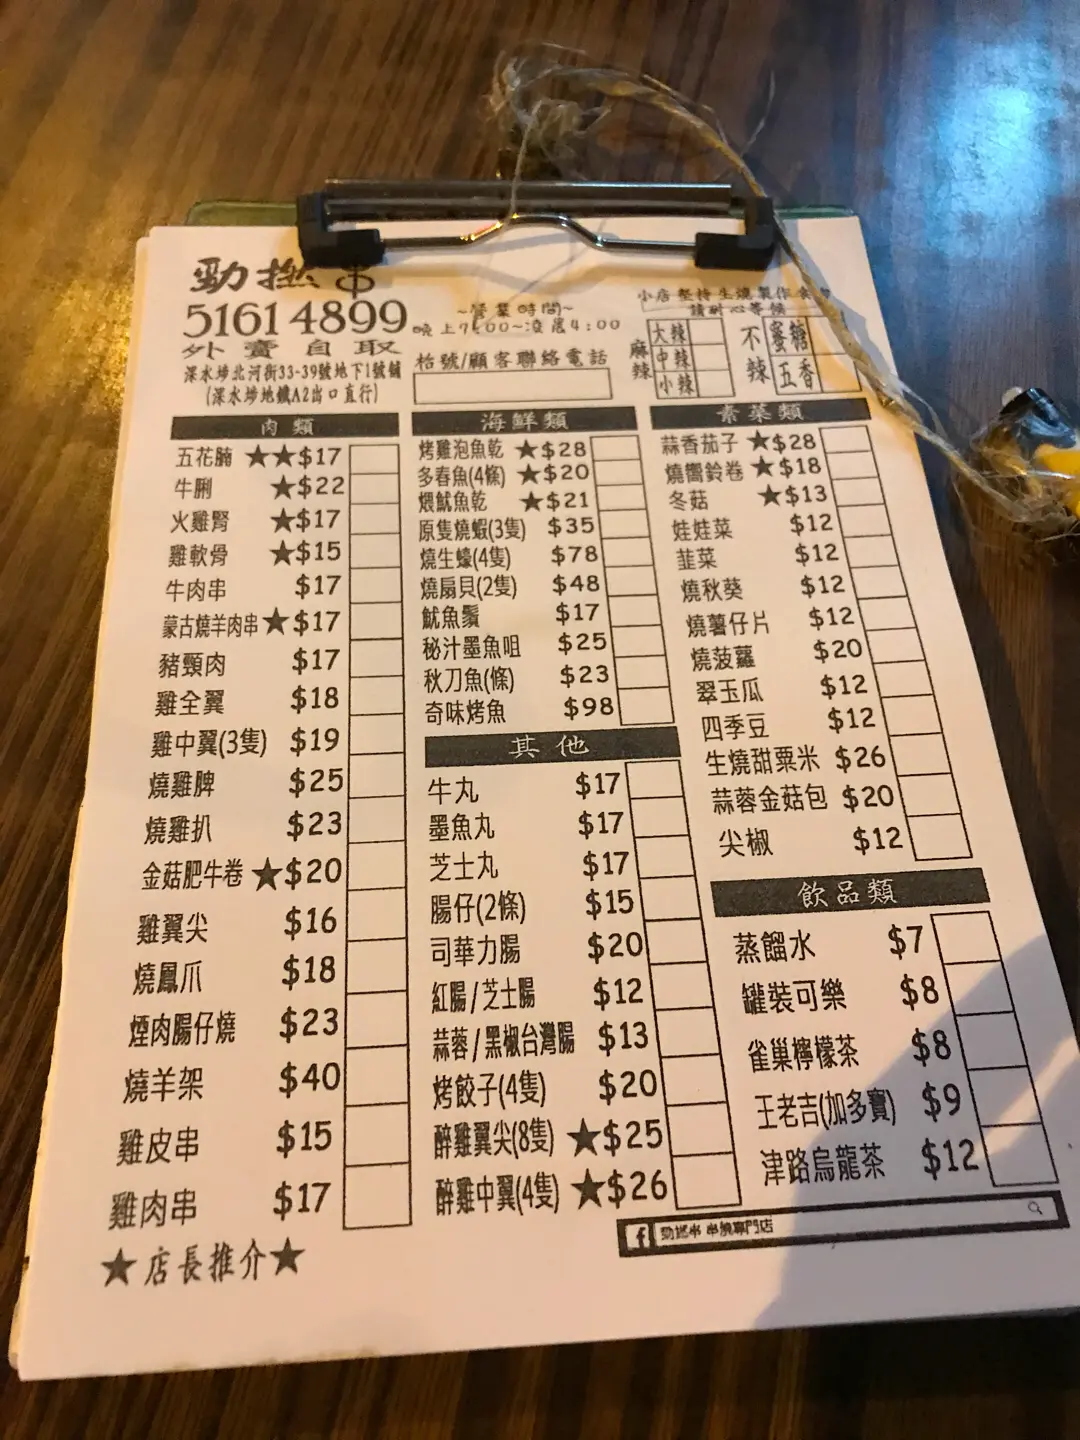 勁撚串
5161 4899
外賣自取
深水埗北河街33-39號地下1號舖
(深水埗地鐵A2出口直行)
~營業時間~
晚上7:00~凌晨4:00
枱號/顧客聯絡電話
小店堅持生燒製作食物
請耐心等候
麻辣
大辣
中辣
小辣
不辣
蜜糖
五香
肉類
五花腩 ★★$17
牛脷 ★$22
火雞腎 ★$17
雞軟骨 ★$15
牛肉串 $17
蒙古燒羊肉串★$17
豬頸肉 $17
雞全翼 $18
雞中翼(3隻) $19
燒雞脾 $25
燒雞扒 $23
金菇肥牛卷 ★$20
雞翼尖 $16
燒鳳爪 $18
煙肉腸仔燒 $23
燒羊架 $40
雞皮串 $15
雞肉串 $17
★店長推介★
海鮮類
烤雞泡魚乾 ★$28
多春魚(4條) ★$20
煨魷魚乾 ★$21
原隻燒蝦(3隻) $35
燒生蠔(4隻) $78
燒扇貝(2隻) $48
魷魚鬚 $17
秘汁墨魚咀 $25
秋刀魚(條) $23
奇味烤魚 $98
其他
牛丸 $17
墨魚丸 $17
芝士丸 $17
腸仔(2條) $15
司華力腸 $20
紅腸/芝士腸 $12
蒜蓉/黑椒台灣腸 $13
烤餃子(4隻) $20
醉雞翼尖(8隻) ★$25
醉雞中翼(4隻) ★$26
素菜類
蒜香茄子 ★$28
燒嚮鈴卷 ★$18
冬菇 ★$13
娃娃菜 $12
韮菜 $12
燒秋葵 $12
燒薯仔片 $12
燒菠蘿 $20
翠玉瓜 $12
四季豆 $12
生燒甜粟米 $26
蒜蓉金菇包 $20
尖椒 $12
飲品類
蒸餾水 $7
罐裝可樂 $8
雀巢檸檬茶 $8
王老吉(加多寶) $9
津路烏龍茶 $12
f 勁撚串 串燒專門店